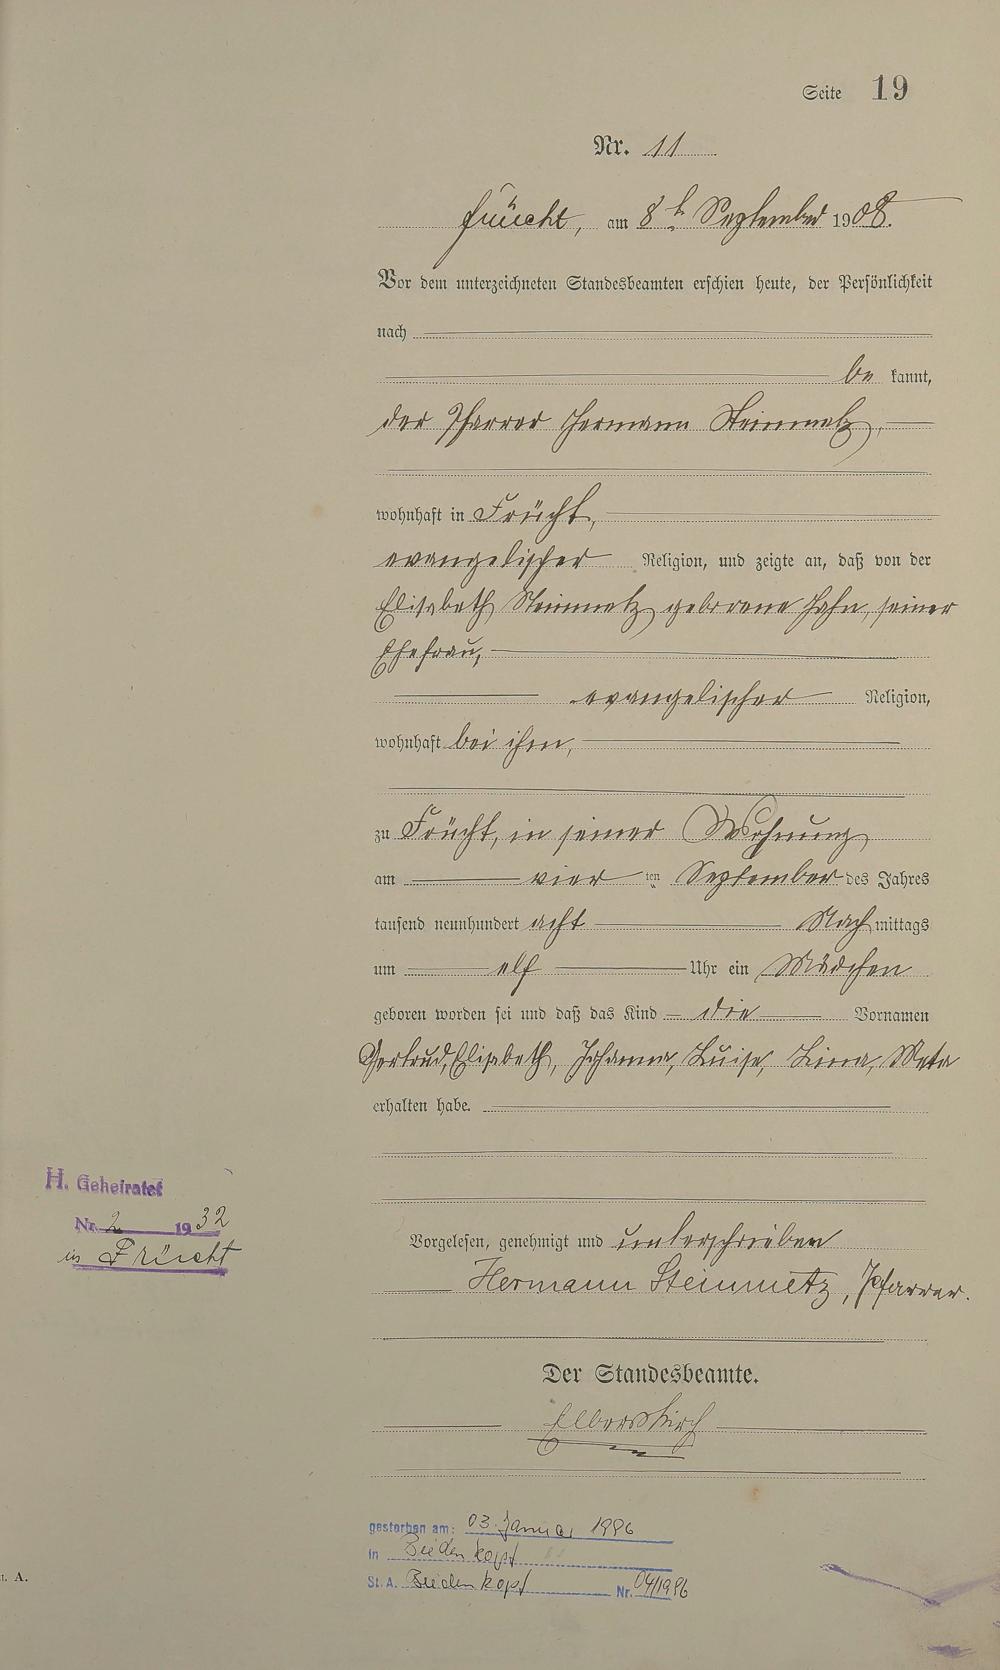 Seite 19
Nr. 11
Frücht, am 8ten September 1908.
Vor dem unterzeichneten Standesbeamten erschien heute, der Persönlichkeit
nach
be kannt,
der Pfarrer Hermann Steinmetz,
wohnhaft in Frücht,
evangelischer Religion, und zeigte an, daß von der
Elisabeth Steinmetz geborene Jahn, seiner
Ehefrau,
evangelischer Religion,
wohnhaft bei ihm,
zu Frücht, in seiner Wohnung
am vier ten September des Jahres
tausend neunhundert acht Nach mittags
um elf Uhr ein Mädchen
geboren worden sei und daß das Kind die Vornamen
Gertrud, Elisabeth, Johanna, Luise, Lina, Meta
erhalten habe.
H. Geheiratet
Nr. 2 1932
in Frücht
Vorgelesen, genehmigt und unterschrieben
Hermann Steinmetz, Pfarrer.
Der Standesbeamte.
gestorben am: 03. Januar 1996
in Biedenkopf
St. A. Biedenkopf Nr. 04/1996
A.